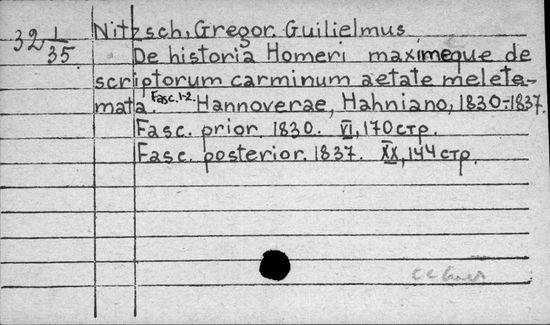 32 1/35 Nitzsch, Gregor. Guilielmus
De historia Homeri maximeque de
scriptorum carminum aetate melete-
mata. Fasc. 1-2. Hannoverae, Hahniano, 1830-1837.
Fasc. prior. 1830. VI, 170 стр.
Fasc. posterior. 1837. XX, 144 стр.